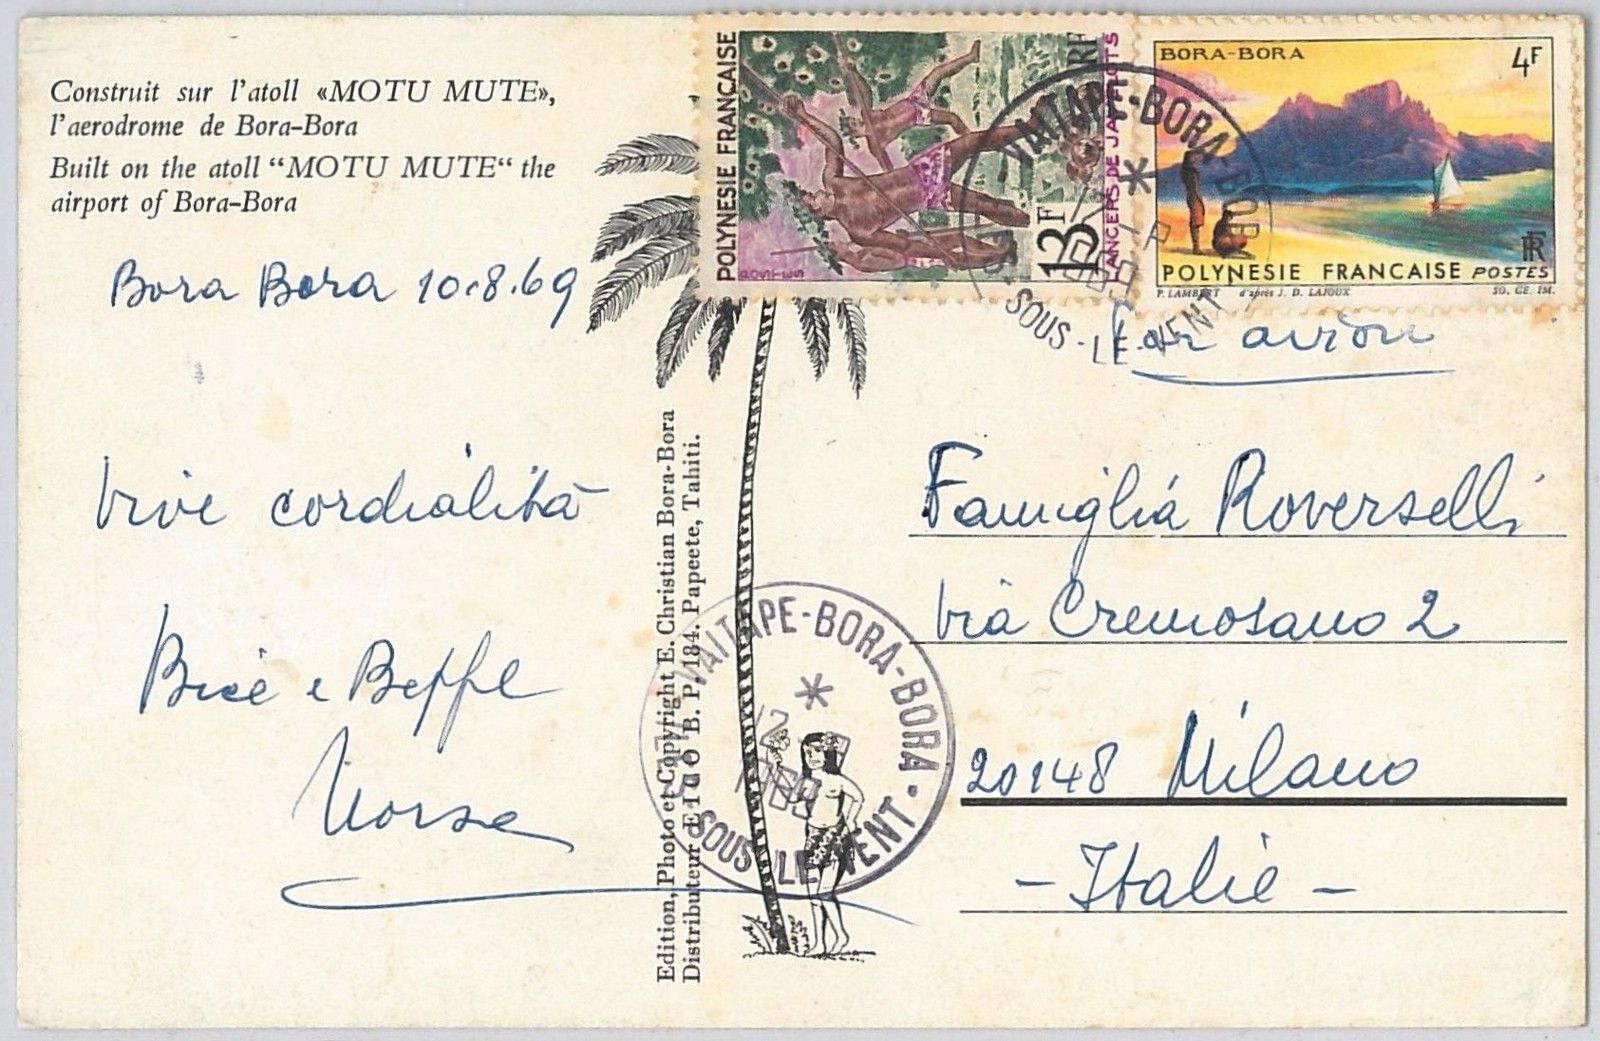 Construit sur l'atoll «MOTU MUTE»,
l'aerodrome de Bora-Bora
Built on the atoll "MOTU MUTE" the
airport of Bora-Bora
Bora Bora 10.8.69
Vive cordialità
Bice e Beppe
Edition, Photo et Copyright E. Christian Bora-Bora
Distributeur B. P. 184. Papeete, Tahiti.
POLYNESIE FRANÇAISE
13F
RF
LANCERS DE JAVELOTS
BORA-BORA
4F
RF
POLYNESIE FRANCAISE POSTES
P. LAMBERT d'après J. D. LAJOUX SO. GE. IM.
VAITAPE-BORA-BORA
SOUS-LE-VENT
Par avion
Famiglia Roverselli
Via Cremosano 2
20148 Milano
- Italie -
VAITAPE-BORA-BORA
SOUS LE VENT
12
1969